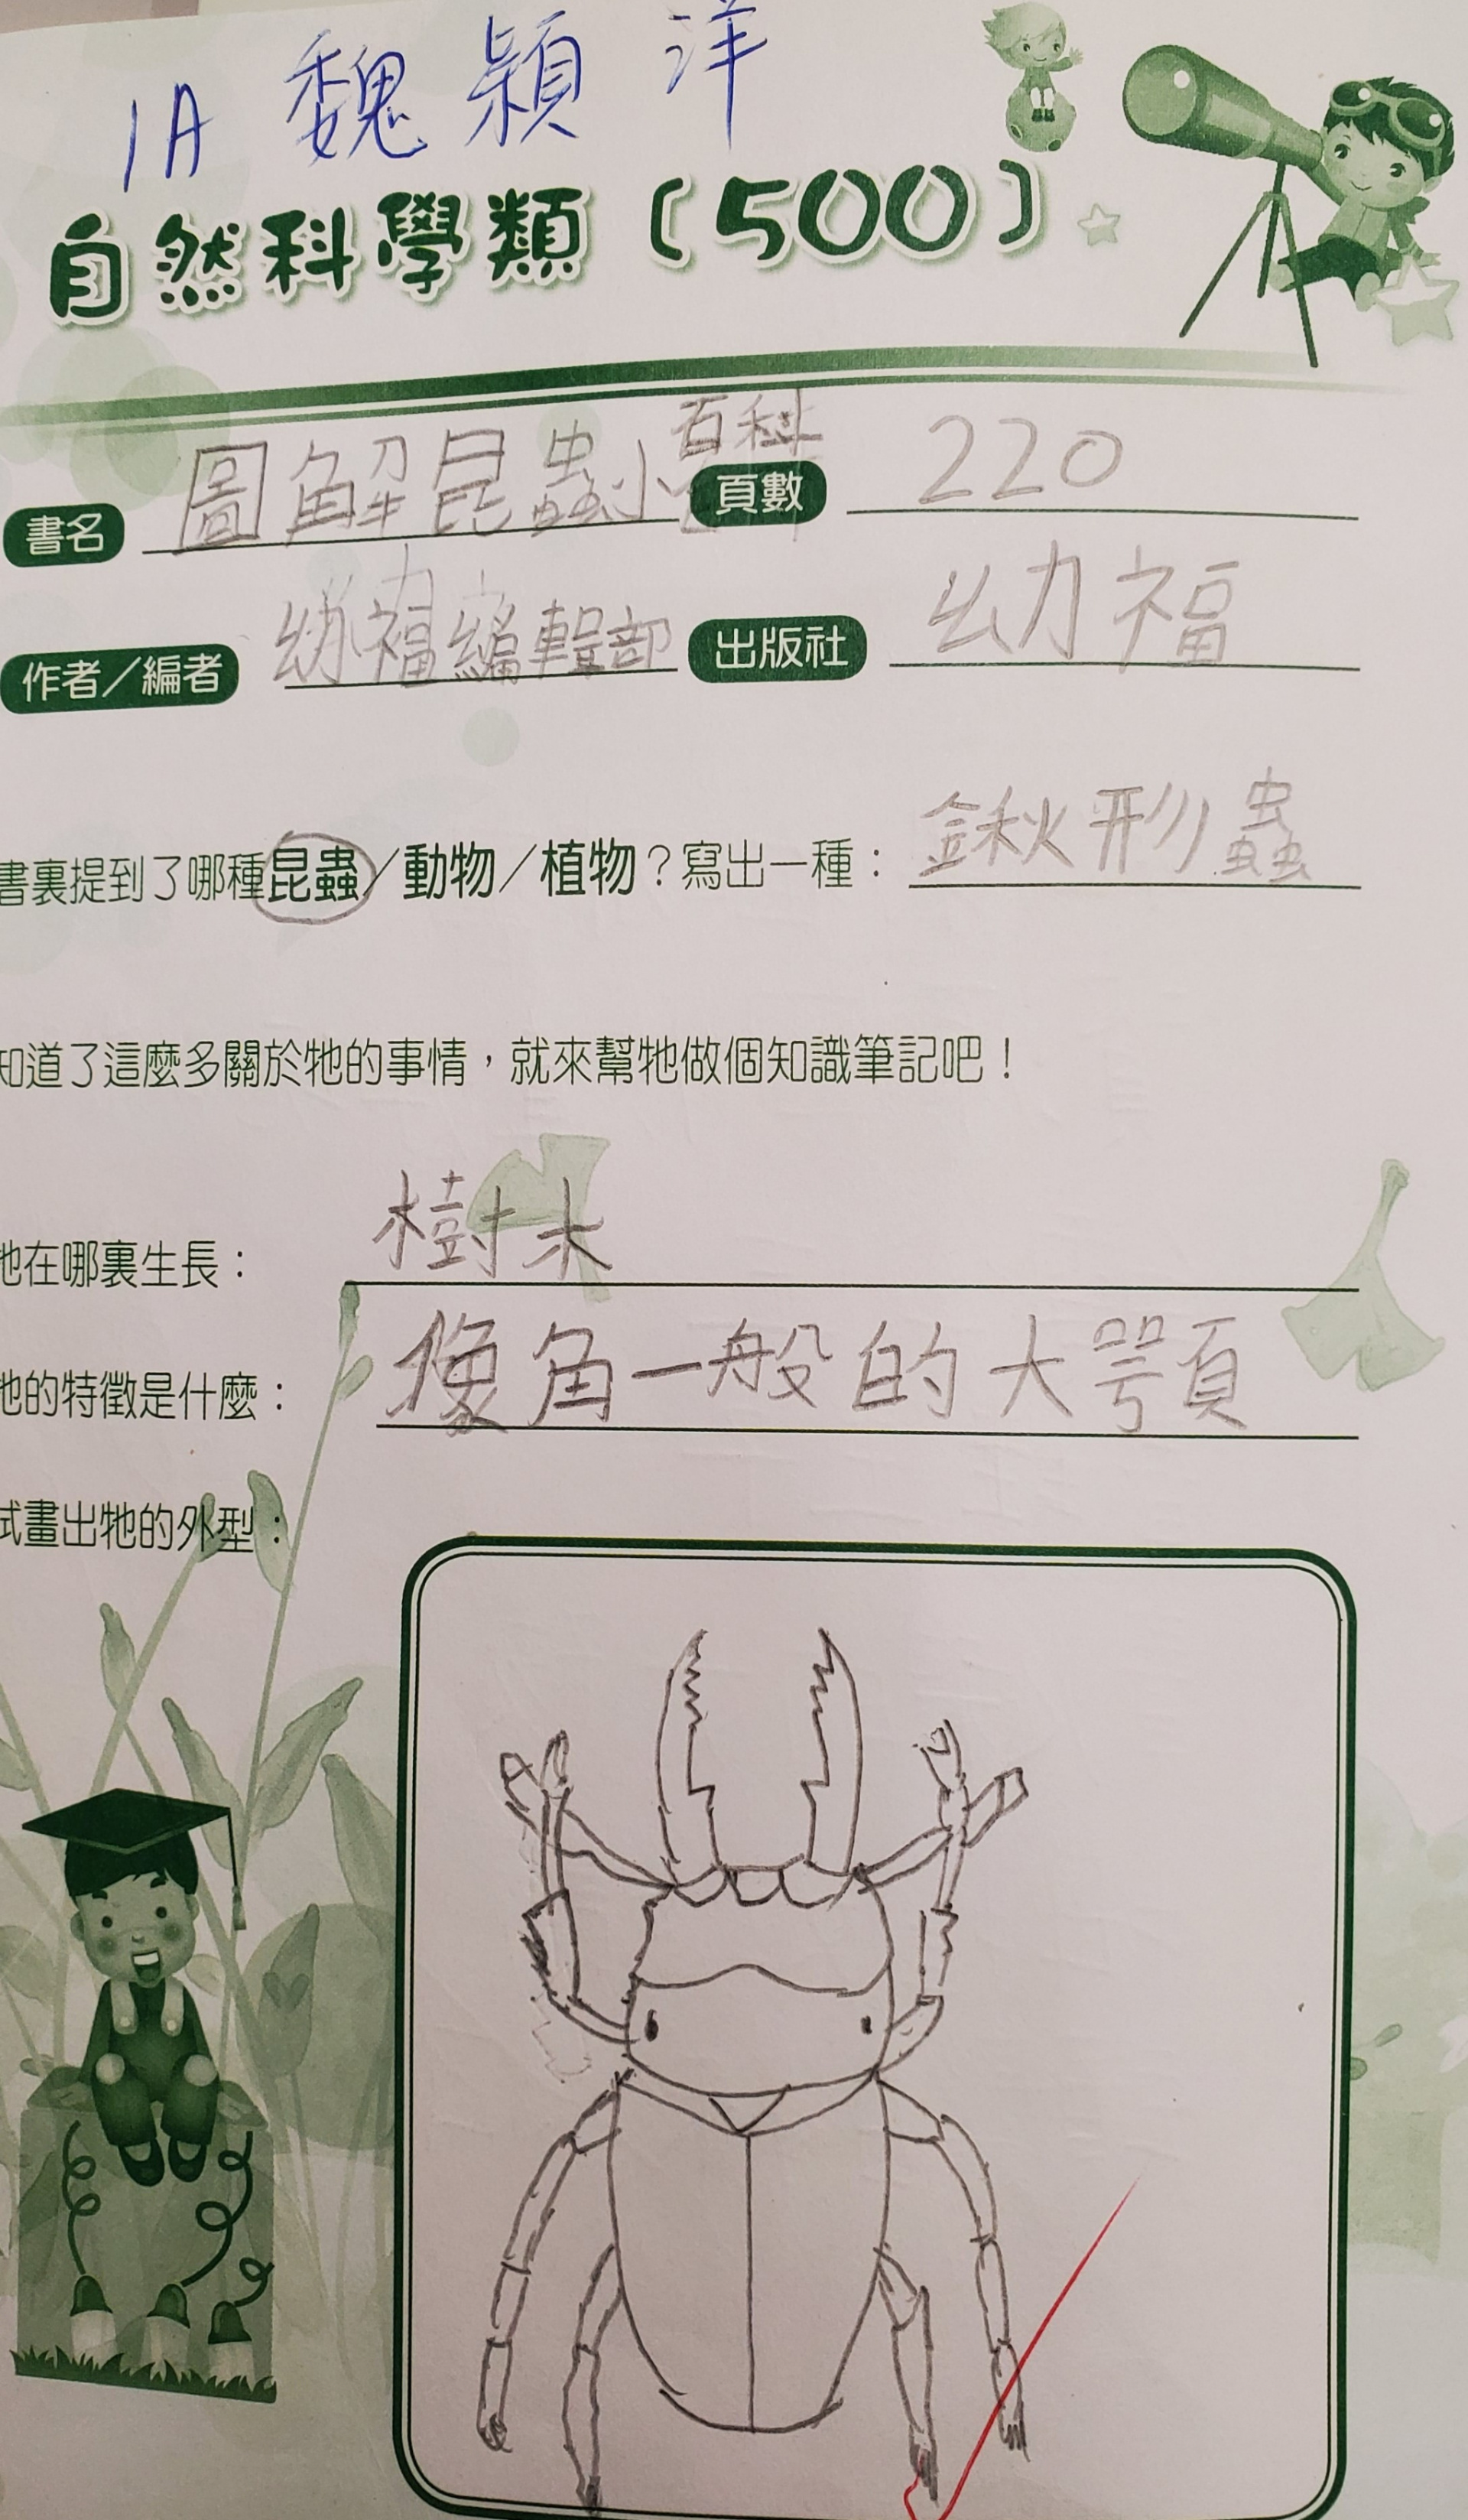 1A 魏穎洋
自然科學類〔500〕
書名 圖解昆蟲小百科 頁數 220
作者／編者 幼福編輯部 出版社 幼福
書裏提到了哪種昆蟲／動物／植物？寫出一種：鍬形蟲
知道了這麼多關於牠的事情，就來幫牠做個知識筆記吧！
牠在哪裏生長：樹木
牠的特徵是什麼：像角一般的大顎
試畫出牠的外型：